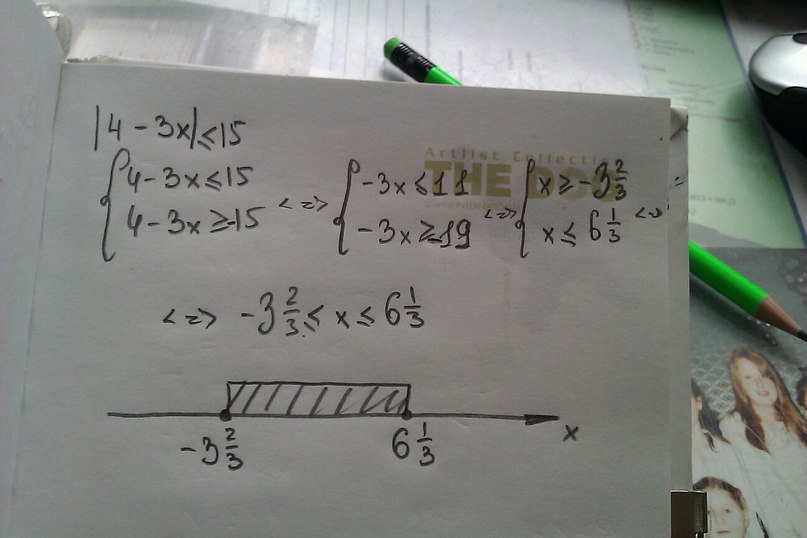 |4 - 3x| ≤ 15
{ 4 - 3x ≤ 15
4 - 3x ≥ -15 <=> { -3x ≤ 11
-3x ≥ -19 <=> { x ≥ -3 2/3
x ≤ 6 1/3 <=>
<=> -3 2/3 ≤ x ≤ 6 1/3
-3 2/3 6 1/3 x
Artlist Collection
THE DOG